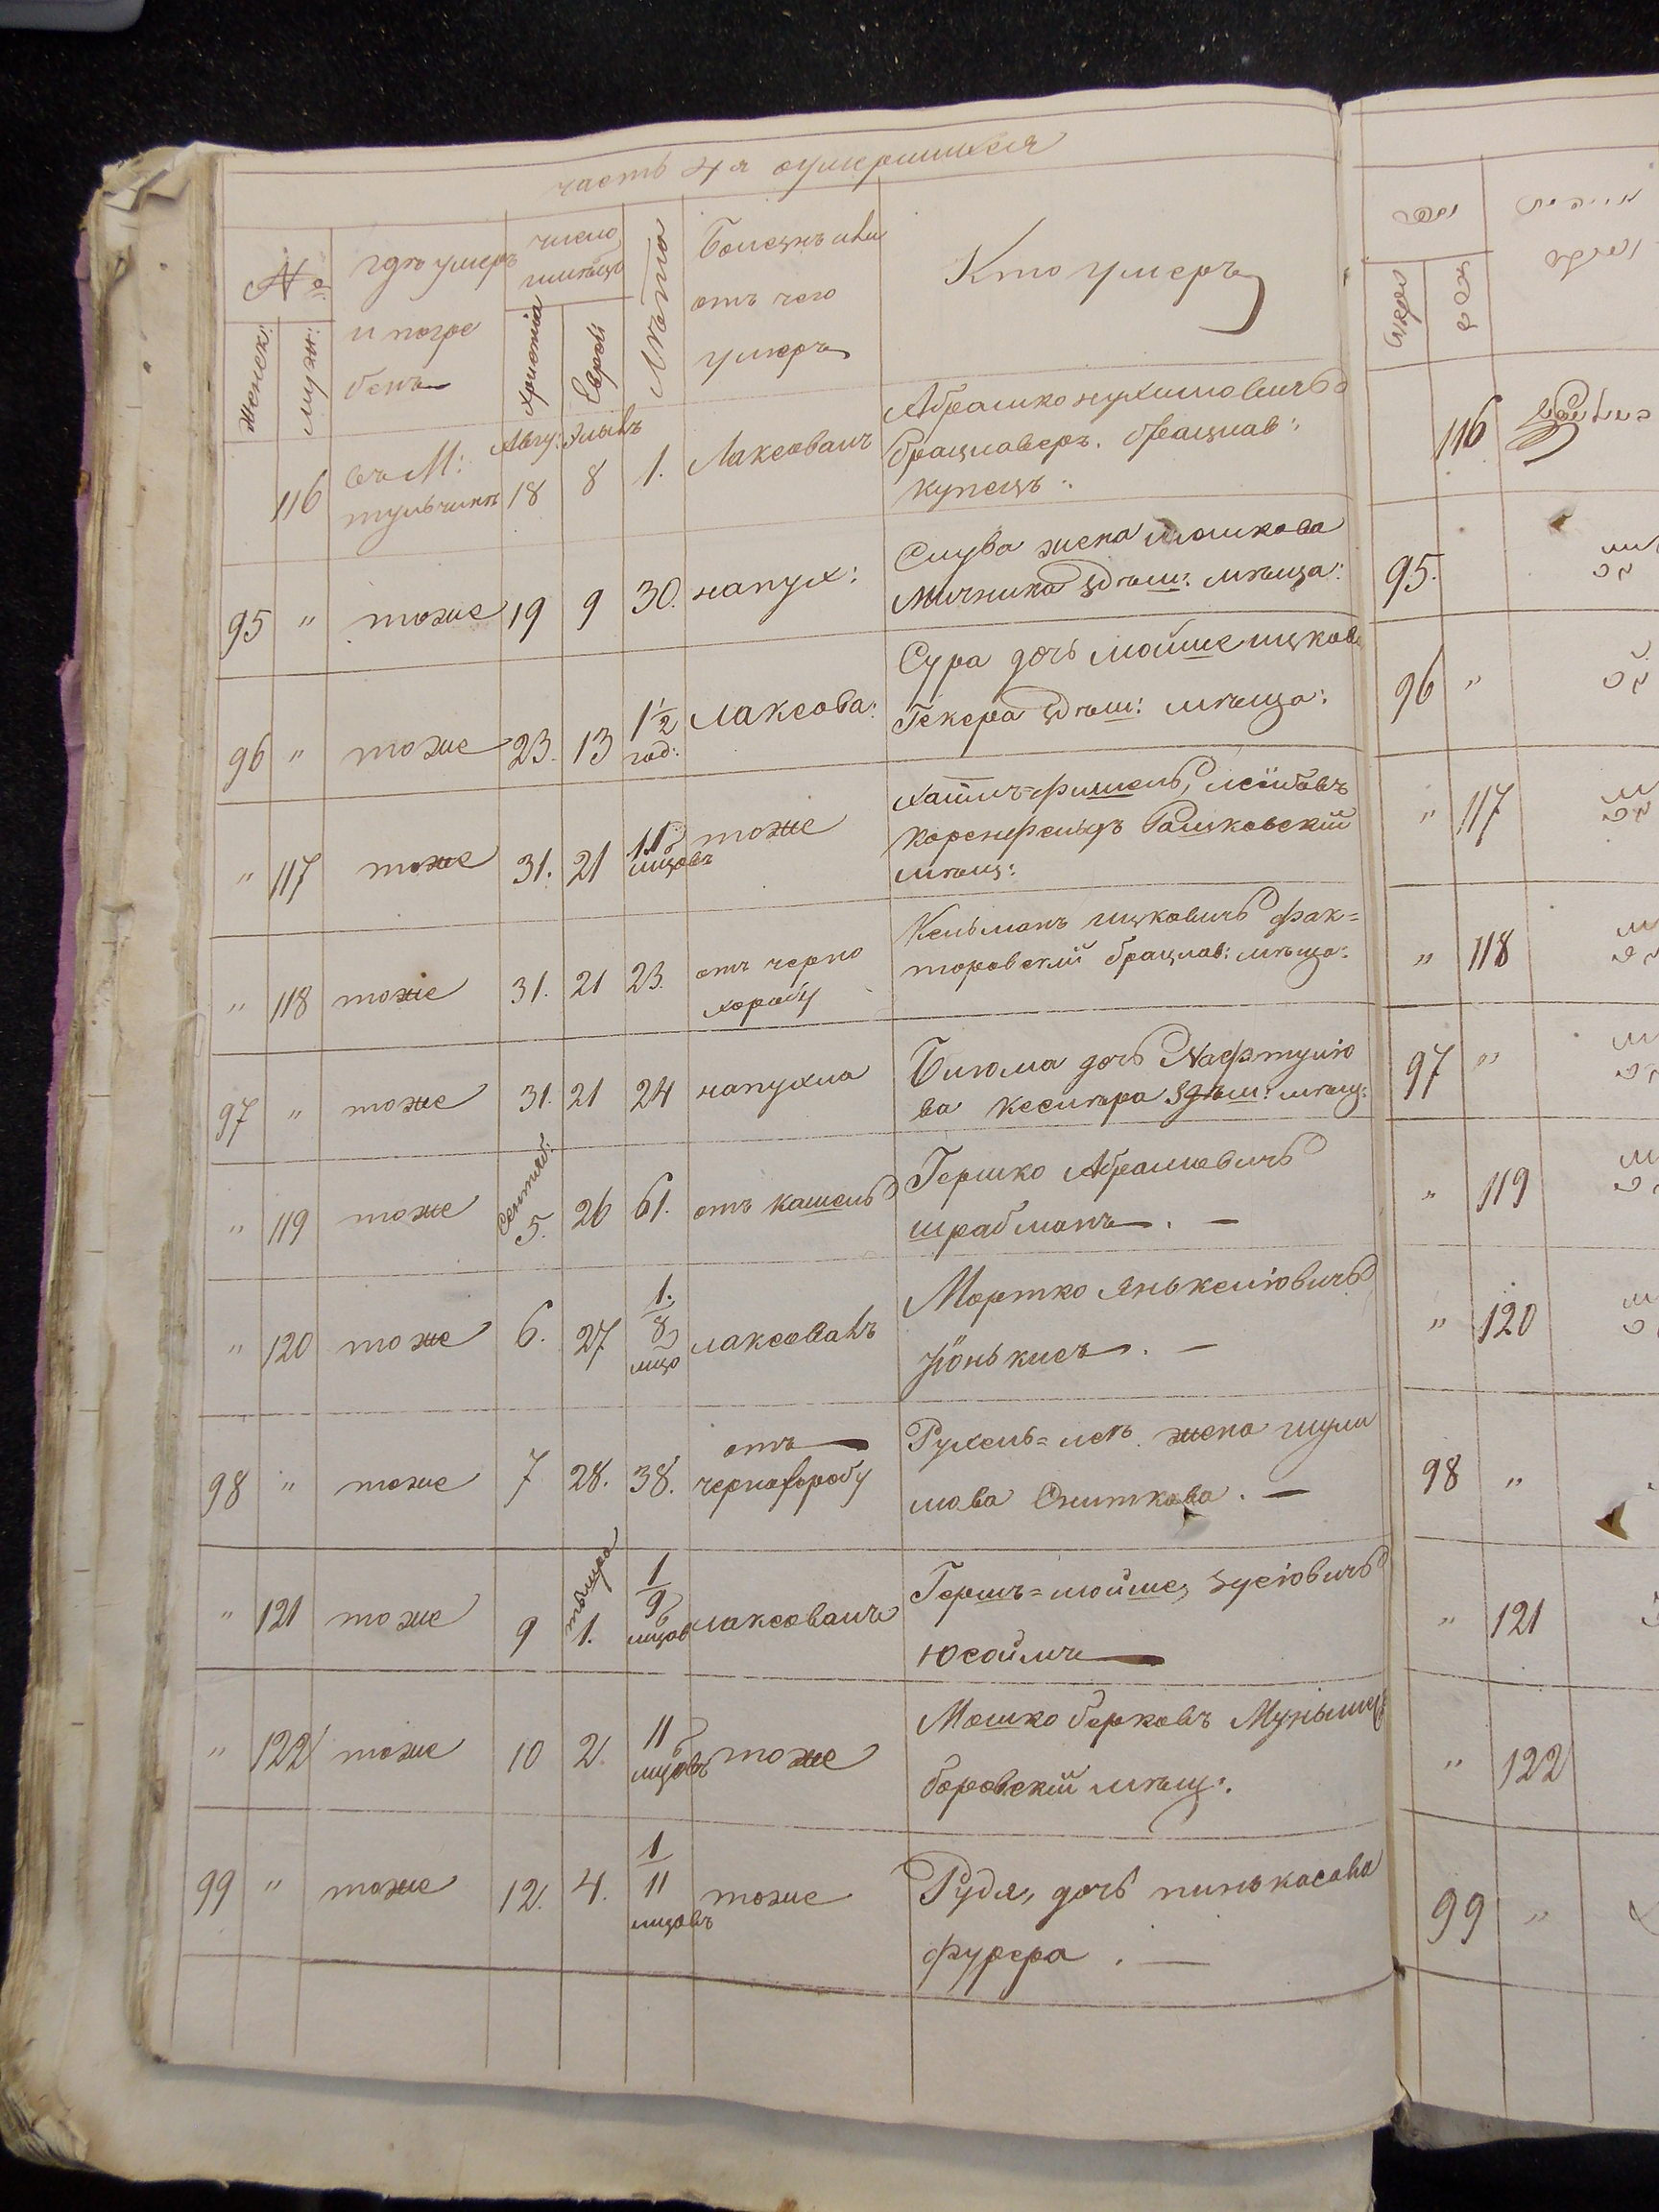 часть 4я оумершихся
№ й
гдѣ умеръ
и погре
бенъ
число
имѣсяцъ
Лѣта
Болезнь или
отъ чего
умеръ
Кто умеръ
Женск:
Мужи:
Христіа
Еврей
116 въ М: тульчинѣ Авгу: 18 Элылъ 8 1. Лаксовалъ
Абрашко нухимовичъ
брацлаверъ. брацлав:
купецъ:
95 " тоже 19 9 30. напух:
Слува жена мошкова
Мичника здѣш: мѣща:
96 " тоже 23. 13 1½ год: лаксова:
Сура дочь мойше ицкова
Гекера здѣш: мѣща:
" 117 тоже 31. 21 11 мцовъ тоже
фишель, лейбовъ
коренфельдъ Рашковскій
мѣщ:
" 118 тоже 31. 21 23. отъ черно хоробу
Кельманъ ицковичъ фак=
торовскій брацлав: мѣща:
97 " тоже 31. 21 24 напухла
Блюма дочь Нафтуліо
ва кесилера здѣш: мѣщ:
" 119 тоже Сентяб: 5. 26 61. отъ кашель
Гершко Абрамовичъ
шрабманъ. —
" 120 тоже 6. 27 1. 8 мцо лаксовалъ
Мортко Янькеліовичъ
98 " тоже 7 28. 38. отъ чернахоробу
Рухель=леѣ жена шулы
мова Сниткова. —
" 121 тоже 9 тышра 1. 1 9 мцов лаксовалъ
Гершъ=мойше, зусіовичъ
Юсаймъ
" 122 тоже 10 2. 11 мцовъ тоже
Мошко берковъ
боровскій мѣщ:.
99 " тоже 12. 4. 1 11 мцовъ тоже
Рудя, дочь пинькасова
фурера. —
116
95.
96 "
" 117
" 118
97 "
" 119
" 120
98 "
" 121
" 122
99 "